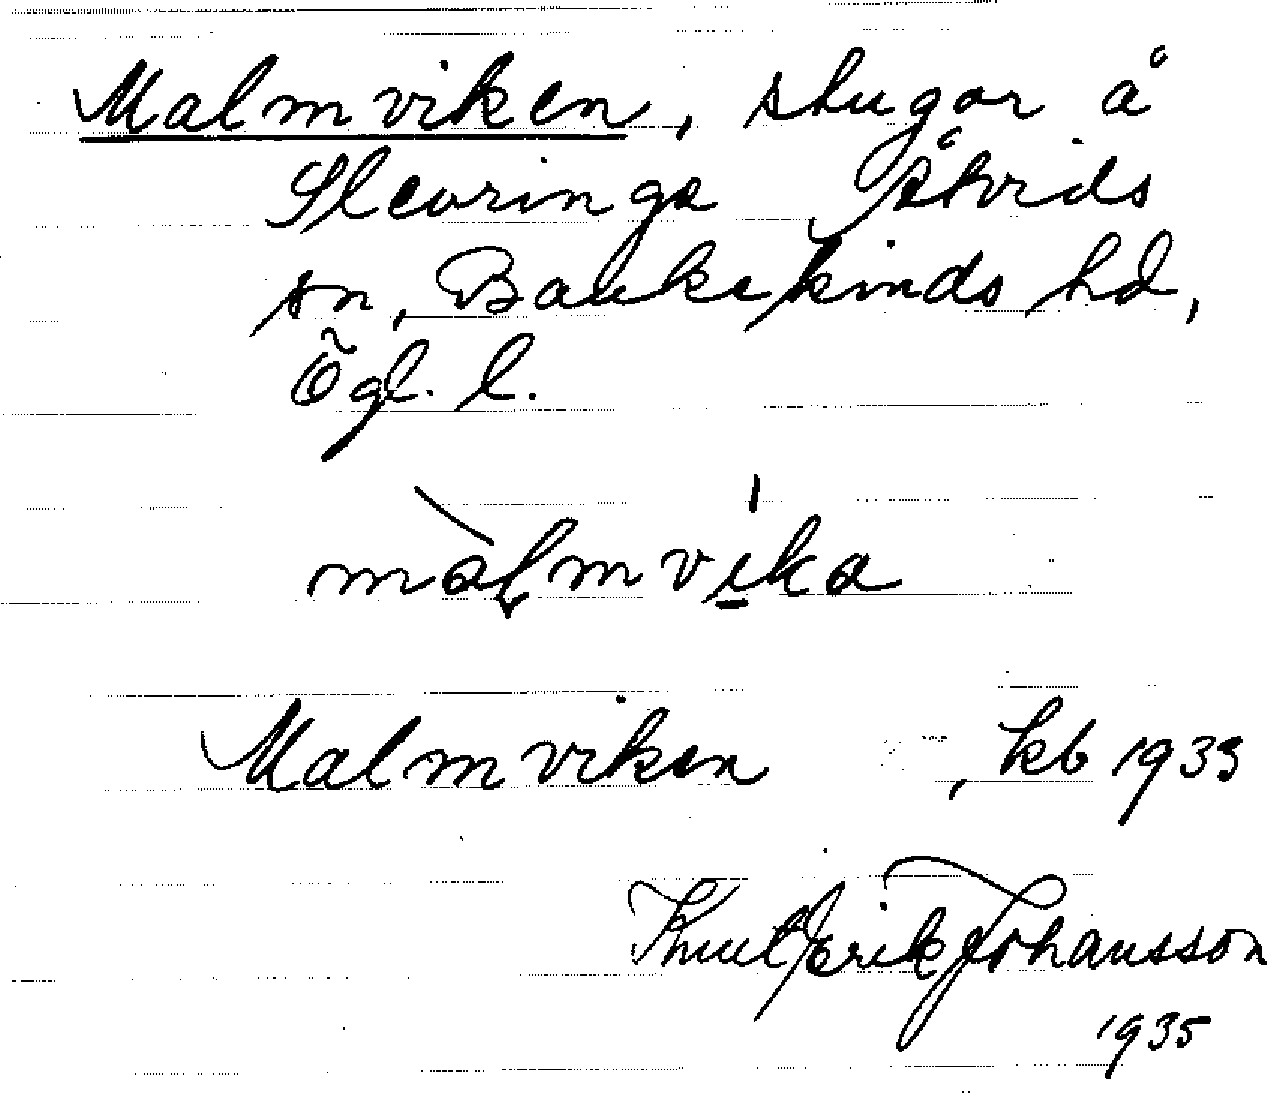 Malmviken, stugor å
Slevringe, Åtvids
sn, Bankekinds hd,
Ögl. l.
màlmvika
Malmviken , kb 1933
Knut Erik Johansson
1935